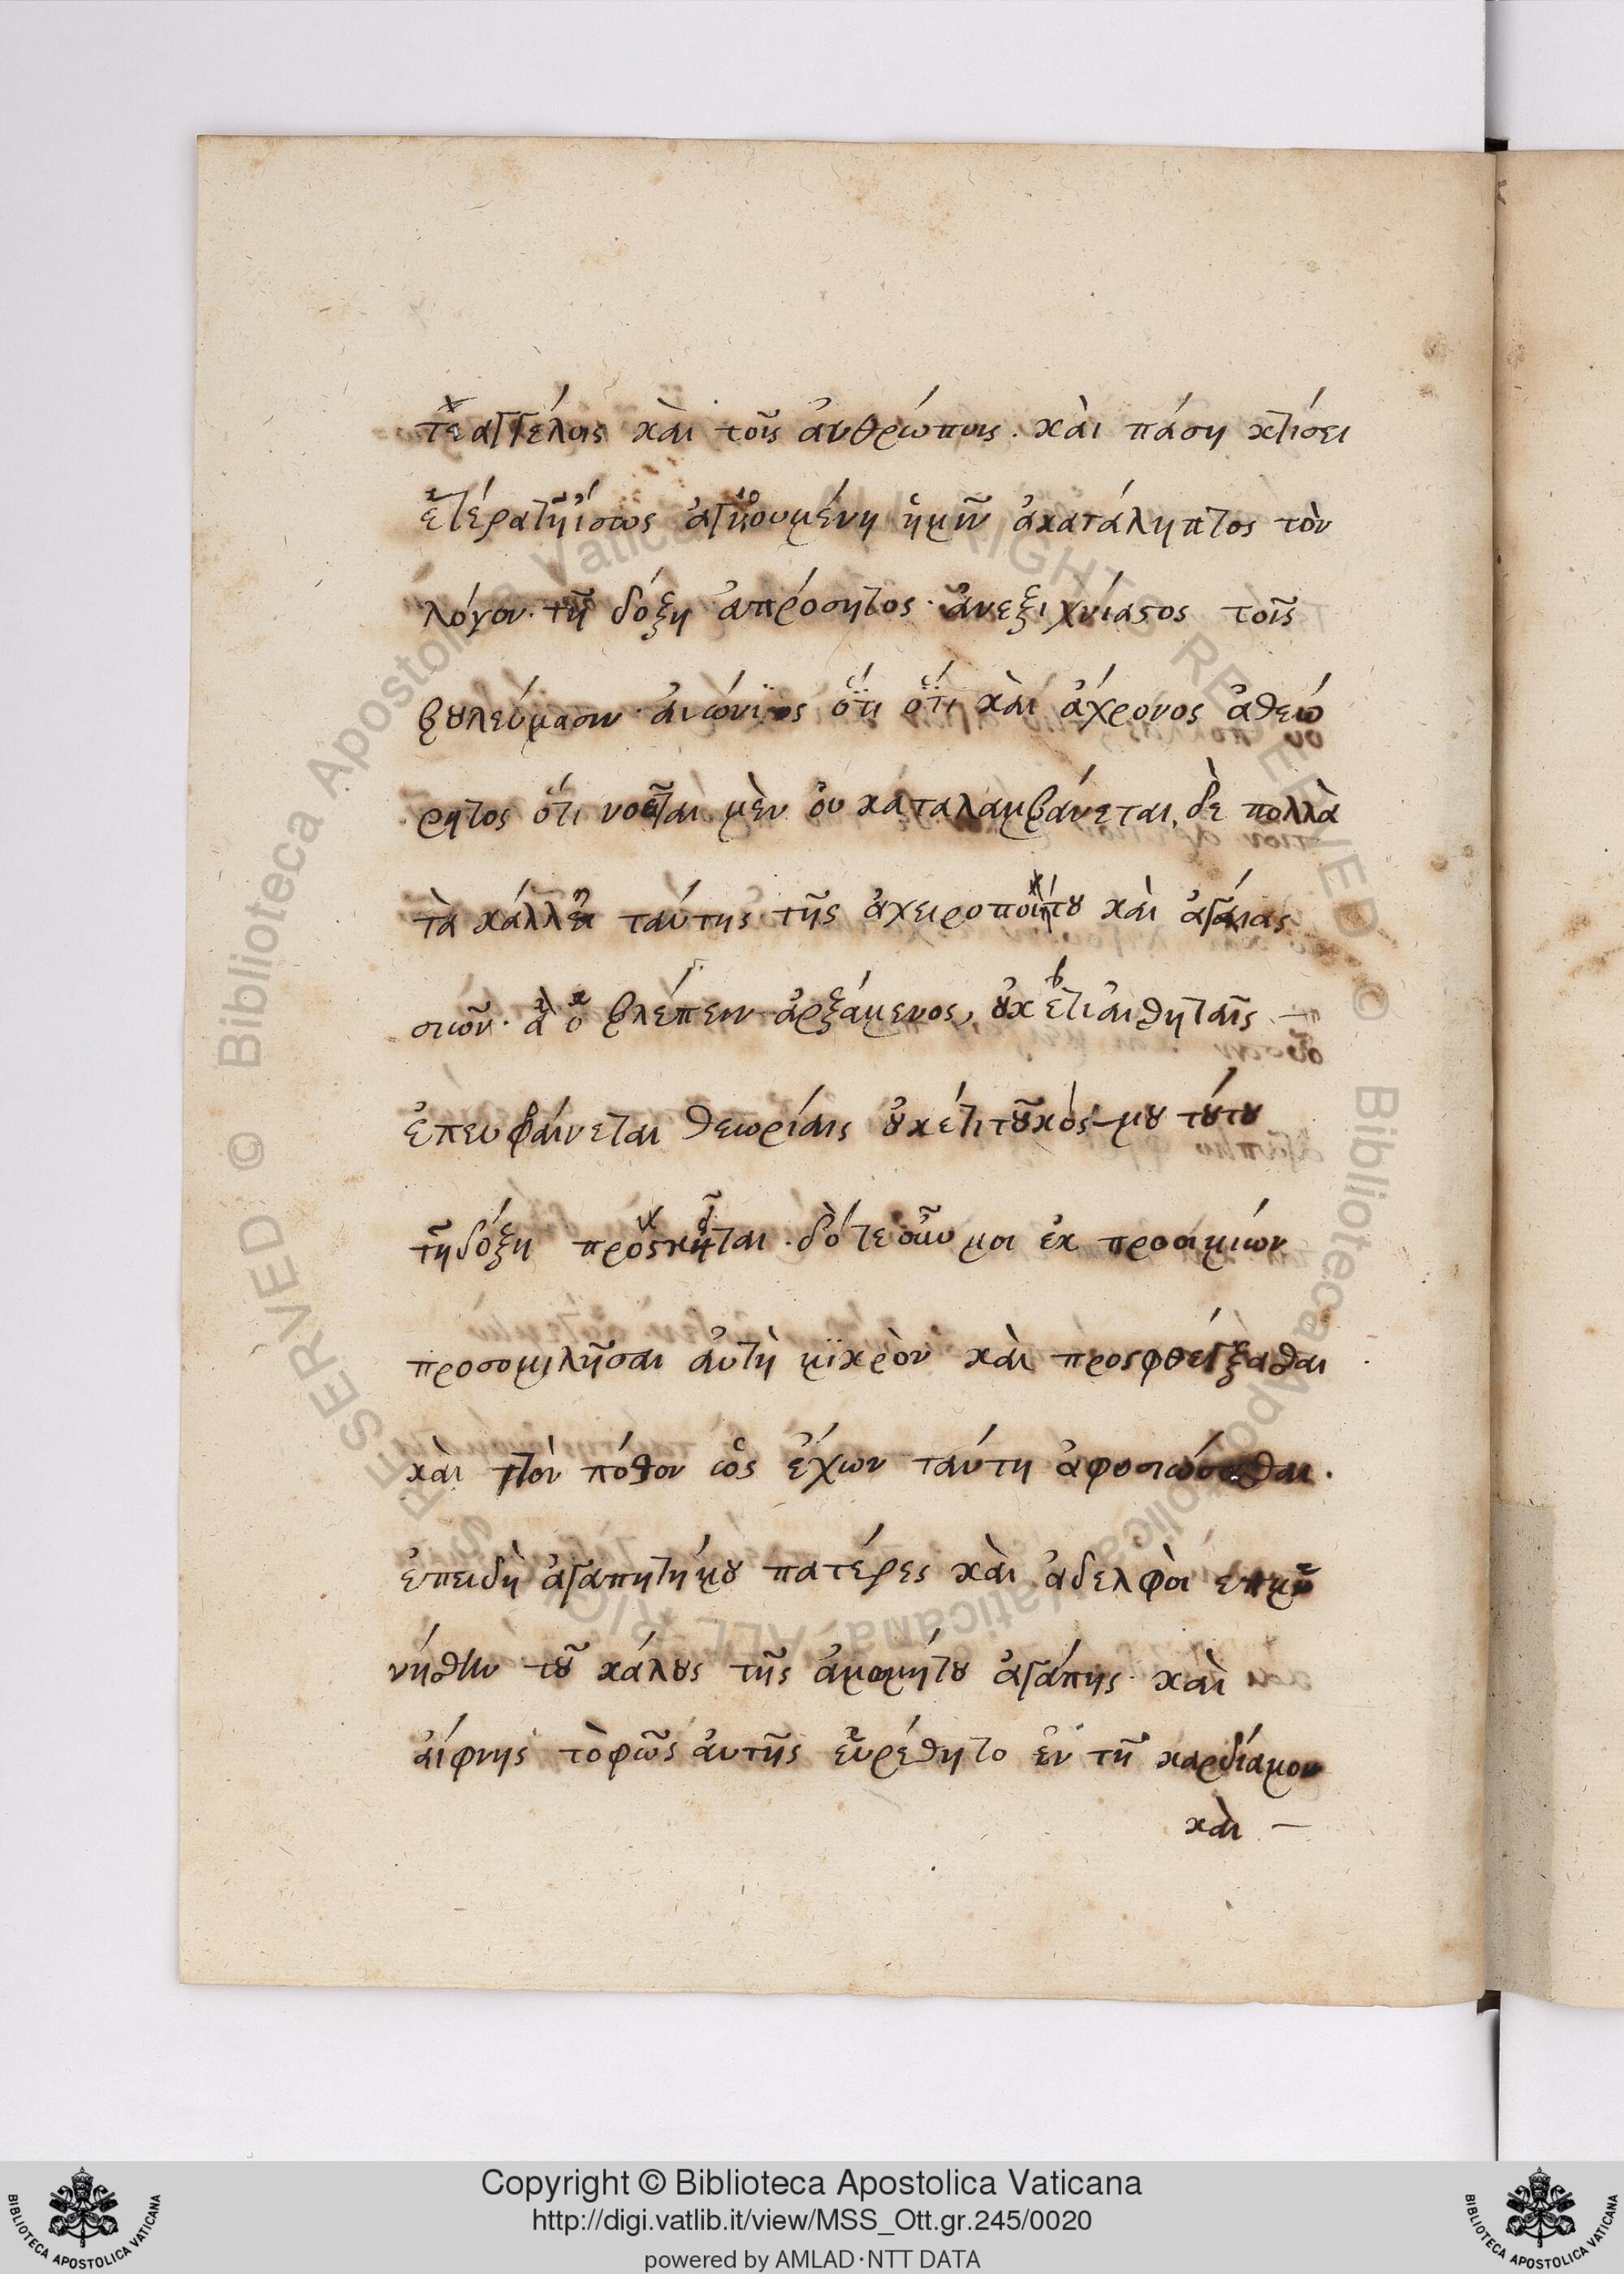 τὲ ἀγγέλοις καὶ τοῖς ἀνθρώποις. καὶ πάση κτίσει
ἑτέρα τῆ ἴσως ἡμῖν ἀκατάληπτος τὸν
λόγον. τῆ δόξη ἀπρόσητος. ἀνεξιχνίαστος τοῖς
βουλεύμασιν. ἀιώνϊος ὅτι ὅτι καὶ ἄχρονος ἀθεώ
ρητος ὅτι νοεῖται μὲν ὀυ καταλαμβάνεται, δὲ πολλὰ
τὰ κάλλη ταύτης τῆς ἀχειροποιήτου καὶ ἁγίας
σιὼν. ἃ ὁ βλέπειν ἀρξάμενος, ὀυκ ἔτι ἀισθηταῖς –
ἐπευφραίνεται θεωρίαις ὀυκέτι τοῦ κόσ–μου τούτου
τῆ δόξη πρόσκηται. δότε οὖν μοι ἐκ προοιμιων
προσομιλῆσαι ἀυτὴ μϊκρὸν καὶ προσφθέγξασθαι
καὶ τὸν πόθον ὡς ἔχων ταύτη ἀφοσιώσασθαι.
ἐπειδὴ ἀγαπητή μου πατέρες καὶ ἀδελφὸι
νήσθην τοῦ κάλους τῆς ἀμωμήτου ἀγάπης. καὶ
ἄιφνης τὸ φῶς ἀυτῆς εὑρέθη το ἐν τῆ καρδία μου
καὶ –
Copyright © Biblioteca Apostolica Vaticana
http://digi.vatlib.it/view/MSS_Ott.gr.245/0020
powered by AMLAD·NTT DATA
BIBLIOTECA APOSTOLICA VATICANA
BIBLIOTECA APOSTOLICA VATICANA